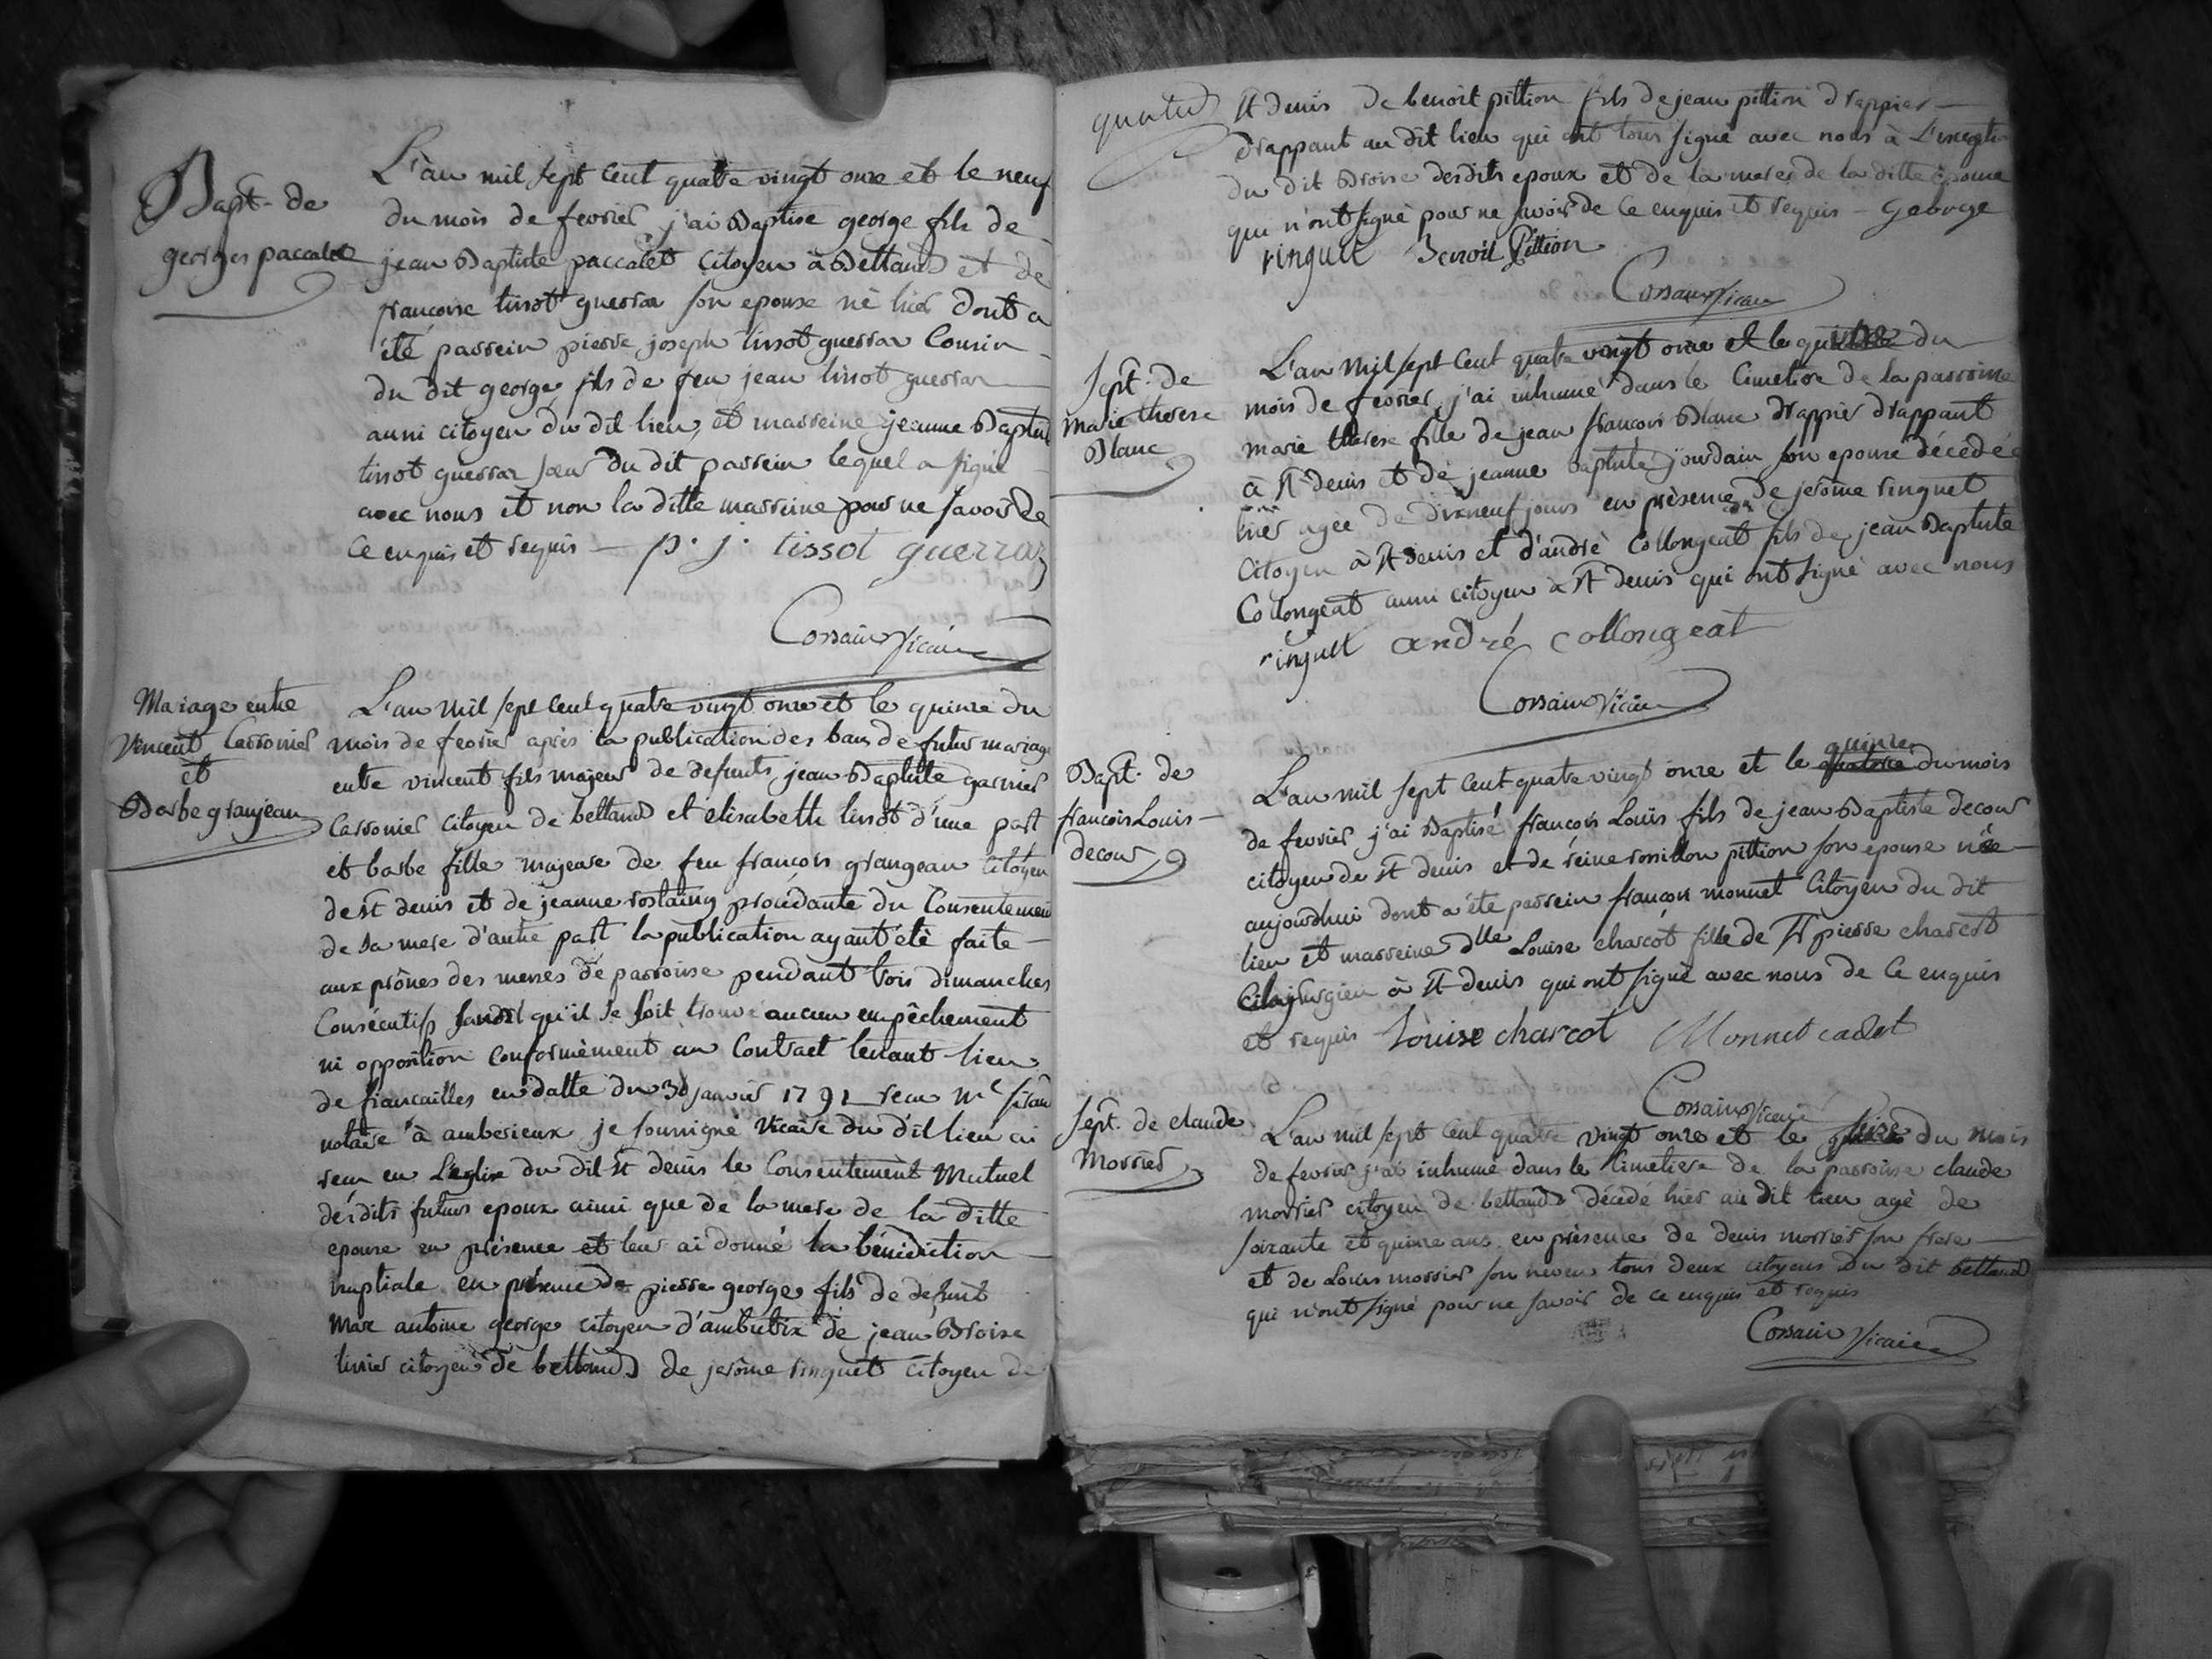 Bapt. de
georges paccalet
L'an mil sept cent quatre vingt onze et le neuf
du mois de fevrier j'ai Baptisé george fils de
jean Baptiste paccalet citoyen à Bettand et de
françoise tissot guerraz son epouse né hier dont a
été parrein pierre joseph tissot guerraz Cousin
du dit george fils de feu jean tissot guerraz
aussi citoyen du dit lieu, et marreine jeanne Baptiste
tissot guerraz soeur du dit parrein lequel a signé
avec nous et non la ditte marreine pour ne savoir de
ce enquis et requis — p. j. tissot guerraz
Cossain vicaire
Mariage entre
Vincent Carronier
et
Barbe granjean
L'an mil sept cent quatre vingt onze et le quinze du
mois de fevrier après la publication des bans de futur mariage
entre vincent fils majeur de defunts jean Baptiste garnier
Carronier citoyen de bettand et elisabeth tissot d'une part
et barbe fille majeure de feu françois grangean citoyen
de st denis et de jeanne rostaing procédante du Consentement
de sa mere d'autre part la publication ayant été faite
aux prônes des messes de parroisse pendant trois dimanches
Consécutifs sans qu'il se soit trouvé aucun empêchement
ni opposition conformément au Contract tenant lieu
de fiancailles en datte du 30 janvier 1791 recu me
notaire à amberieux je soussigné vicaire du dit lieu ai
recu en L'eglise du dit St denis le Consentement Mutuel
desdits futurs epoux ainsi que de la mere de la ditte
epouse en présence et leur ai donné la bénédiction
nuptiale en présence de pierre george fils de defunt
Marc antoine george citoyen d'ambutrix de jean Broise
tinier citoyen de bettand de jerôme ringuet citoyen de
quatre
St denis de benoit pittion fils de jean pittion drappier
drappant au dit lieu qui ont tous signé avec nous à L'exception
du dit Broise desdits epoux et de la mere de la ditte epouse
qui n'ont signé pour ne savoir de ce enquis et requis — George
ringuet Benoit Pittion
Cossain vicaire
Sept. de
marie therese
Blanc
L'an mil sept cent quatre vingt onze et le quinze du
mois de fevrier, j'ai inhumé dans le Cimetiere de la parroisse
marie therese fille de jean françois Blanc drappier drappant
à St denis et de jeanne baptiste jourdain son epouse décédée
hier agée de dixneuf jours en présence de jerôme ringuet
Citoyen à St denis et d'andré Collongeat fils de jean Baptiste
Collongeat aussi citoyen à St denis qui ont signé avec nous
ringuet andré collongeat
Cossain vicaire
Bapt. de
francois Louis
decour
quinze
L'an mil sept cent quatre vingt onze et le quatorze du mois
de fevrier j'ai Baptisé françois Louis fils de jean Baptiste decour
citoyen de St denis et de reine rossillon pittion son epouse né
aujourdhui dont a été parrein françois monnet Citoyen du dit
lieu et marreine dlle Louise charcot fille de Sr pierre charcot
Chirurgien à St denis qui ont signé avec nous de ce enquis
et requis Louise charcot Monnet cadet
Cossain vicaire
Sept. de claude
Morrier
L'an mil sept cent quatre vingt onze et le seize du mois
de fevrier j'ai inhumé dans le Cimetiere de la parroisse claude
morrier citoyen de bettand décédé hier au dit lieu agé de
soixante et quinze ans en présence de denis morrier son frere
et de Louis morrier son neveu tous deux citoyens du dit bettand
qui n'ont signé pour ne savoir de ce enquis et requis
Cossain vicaire